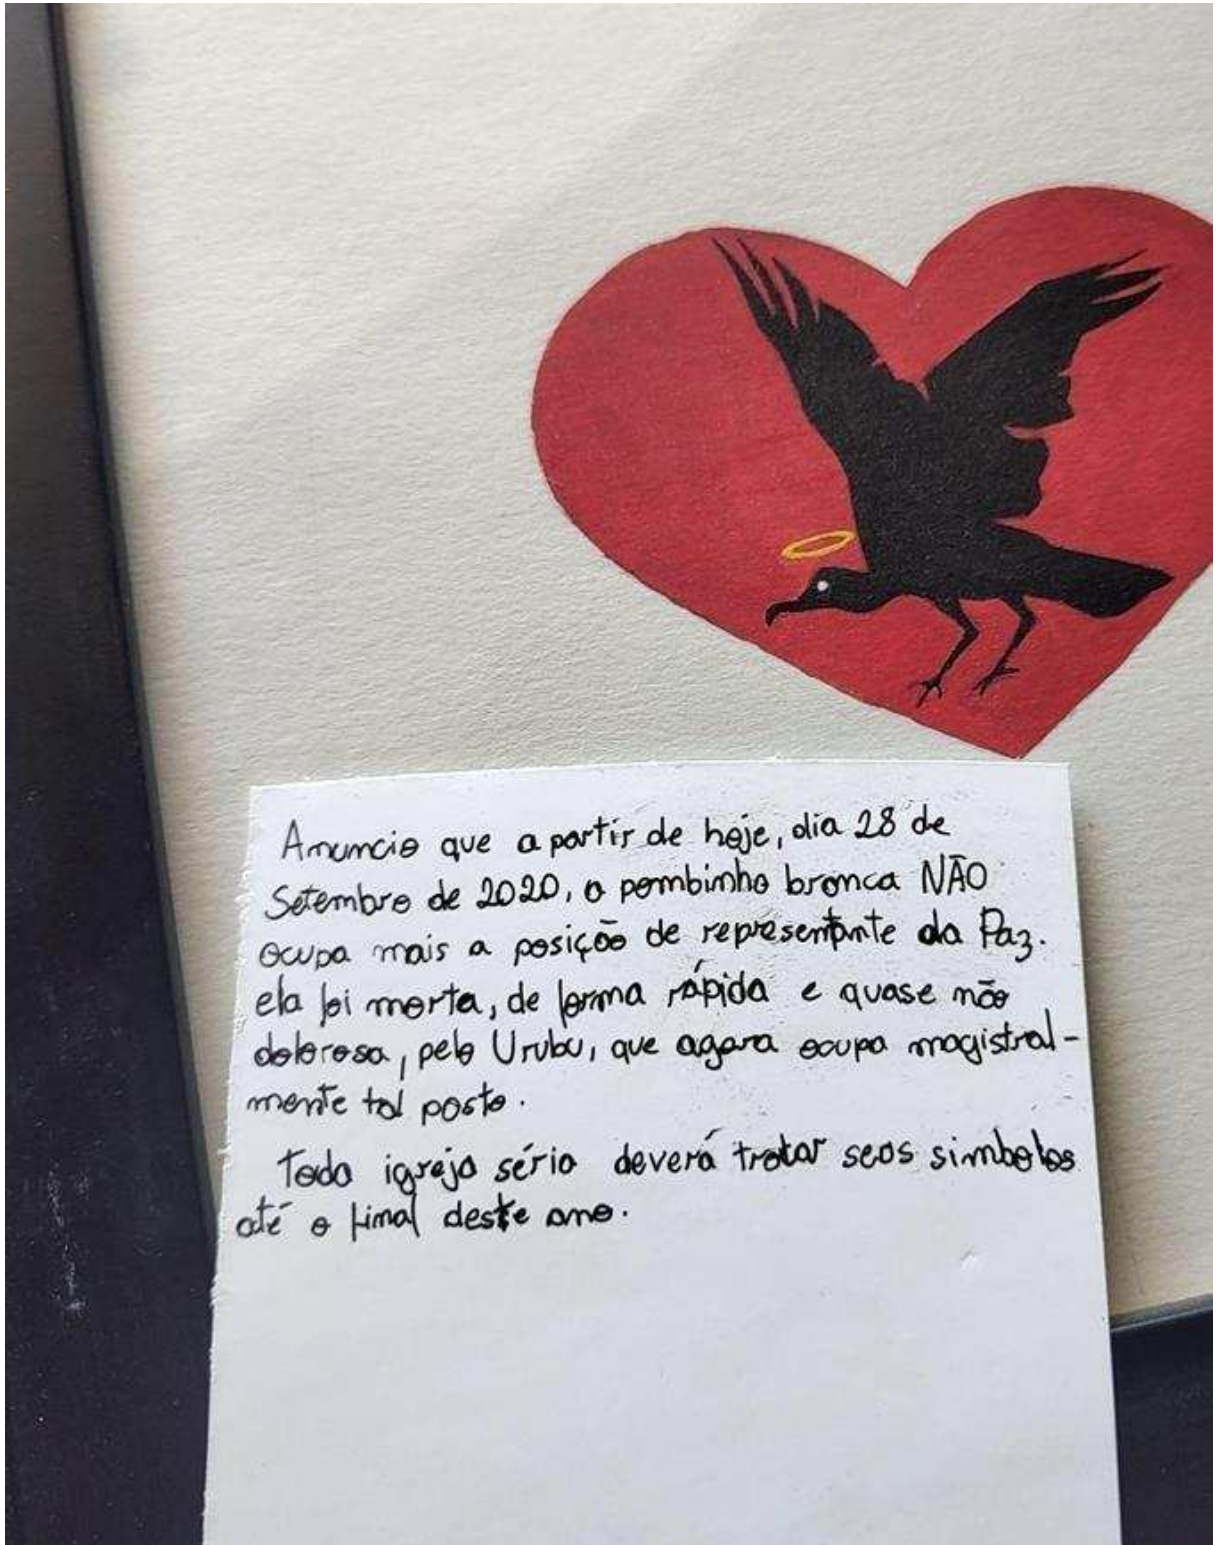 Anuncio que a partir de hoje, dia 28 de
Setembro de 2020, a pombinha branca NÃO
ocupa mais a posição de representante da Paz.
ela foi morta, de forma rápida e quase não
dolorosa, pelo Urubu, que agora ocupa magistral-
mente tal posto.
Toda igreja séria deverá trotar seos simbolos
até o final deste ano.